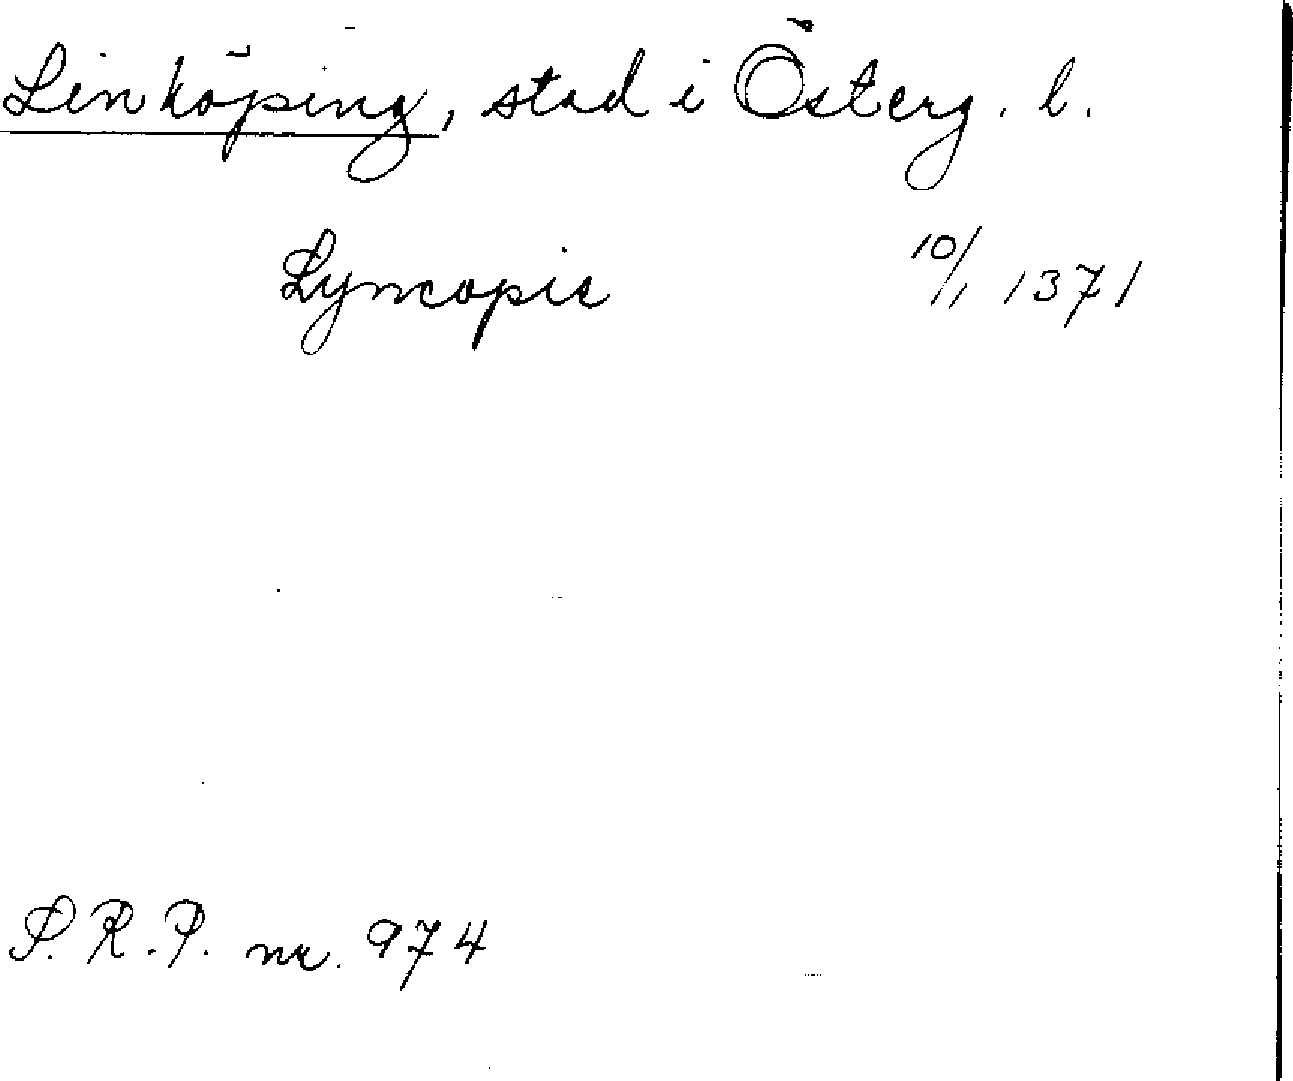 Linköping, stad i Österg. l.
Lyncopie 10/1 1371
S.R.P. nr. 974